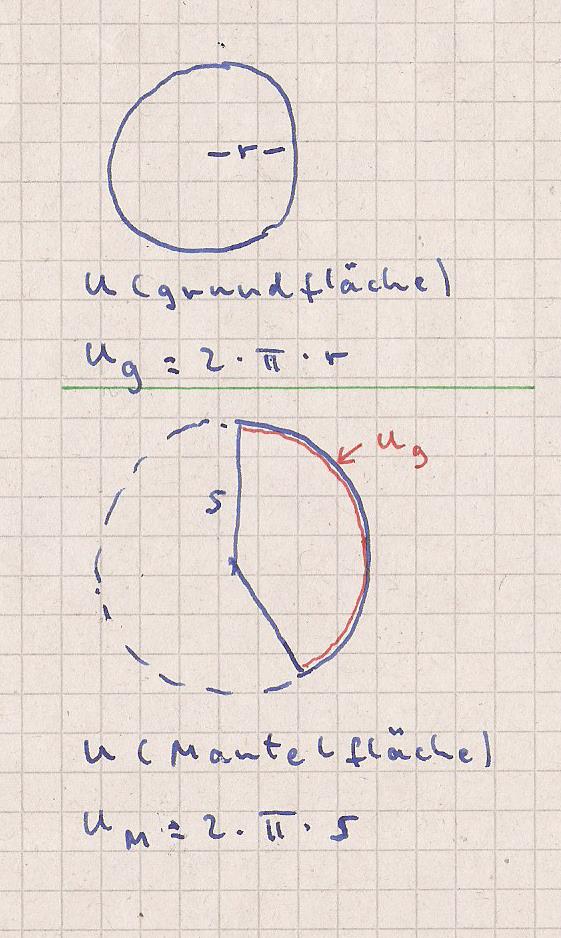 -r-
u (grundfläche)
u_g = 2 · π · r
u_g
s
u (Mantelfläche)
u_M = 2 · π · s